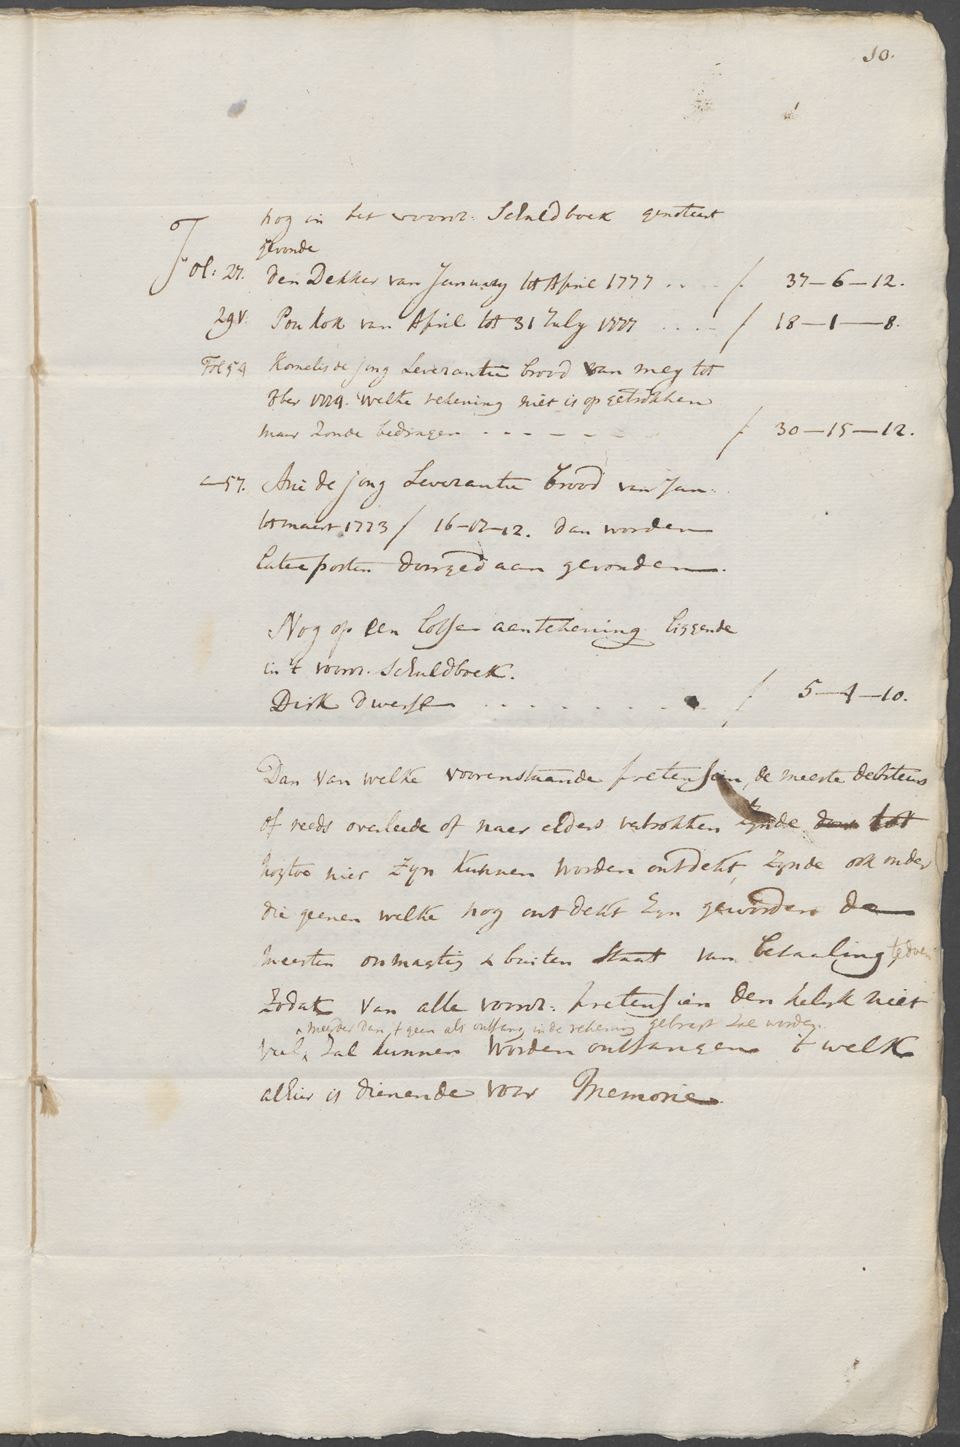 10.
nog in het voorn: Schuldboek genoteert
gevonde
Fol: 27. den Dekker van January tot April 1777 . . . . ƒ 37-6-12.
29v. Pou kok van April tot 31 July 1777 . . . . ƒ 18-1-8.
Fol 54 Kornelis de jong Leverantie brood van mey tot
welke rekening niet is opgetrokken
maar zonde bedragen . . . . . . ƒ 30-15-12.
- 57. Arie de jong Leverantie brood van Jan:
tot maert 1773 ƒ 16-17-12. dan worden
Latere posten doorgedaan gevonden.
Nog op een losse aantekening liggende
in 't voorn. Schuldboek.
Dirk Dwerse . . . . . . . . ƒ 5-4-10.
Dan van welke voorenstaande pretensien, de meeste debiteurs
of reeds overleede of naer elders vertrokken zynde tot
nogtoe niet zyn kunnen worden ontdekt, zynde ook onder
die geenen welke nog ontdekt zyn geworden de
meesten onmagtig & buiten staat van betaaling te doen
zodat van alle voorn: pretensien denkelyk niet
meerder dan 't geen als ontfang in de rekening gebragt zal worden
veel, zal kunnen worden ontfangen 't welk
alhier is dienende voor Memorie.